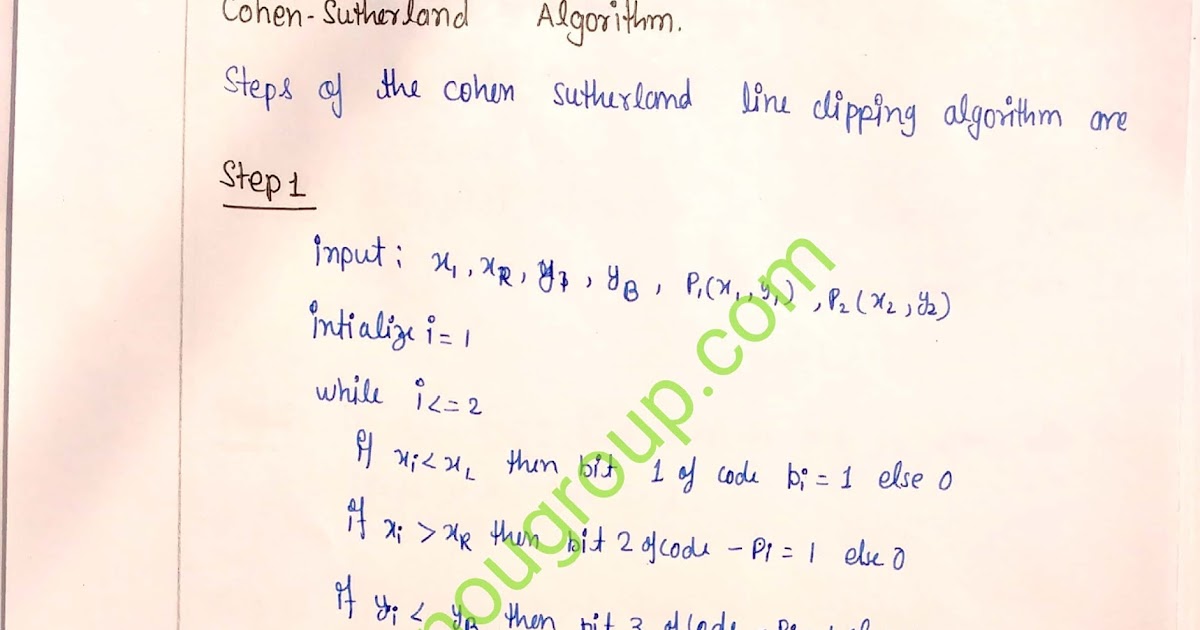 Cohen-Sutherland Algorithm.
Steps of the cohen sutherland line clipping algorithm are
Step 1
input: x₁, x_R, y_T, y_B, P₁(x₁, y₁), P₂(x₂, y₂)
intialize i = 1
while i <= 2
if xᵢ < x_L then bit 1 of code pᵢ = 1 else 0
if xᵢ > x_R then bit 2 of code - Pᵢ = 1 else 0
if yᵢ < y_B then bit 3 of code
ougroup.com